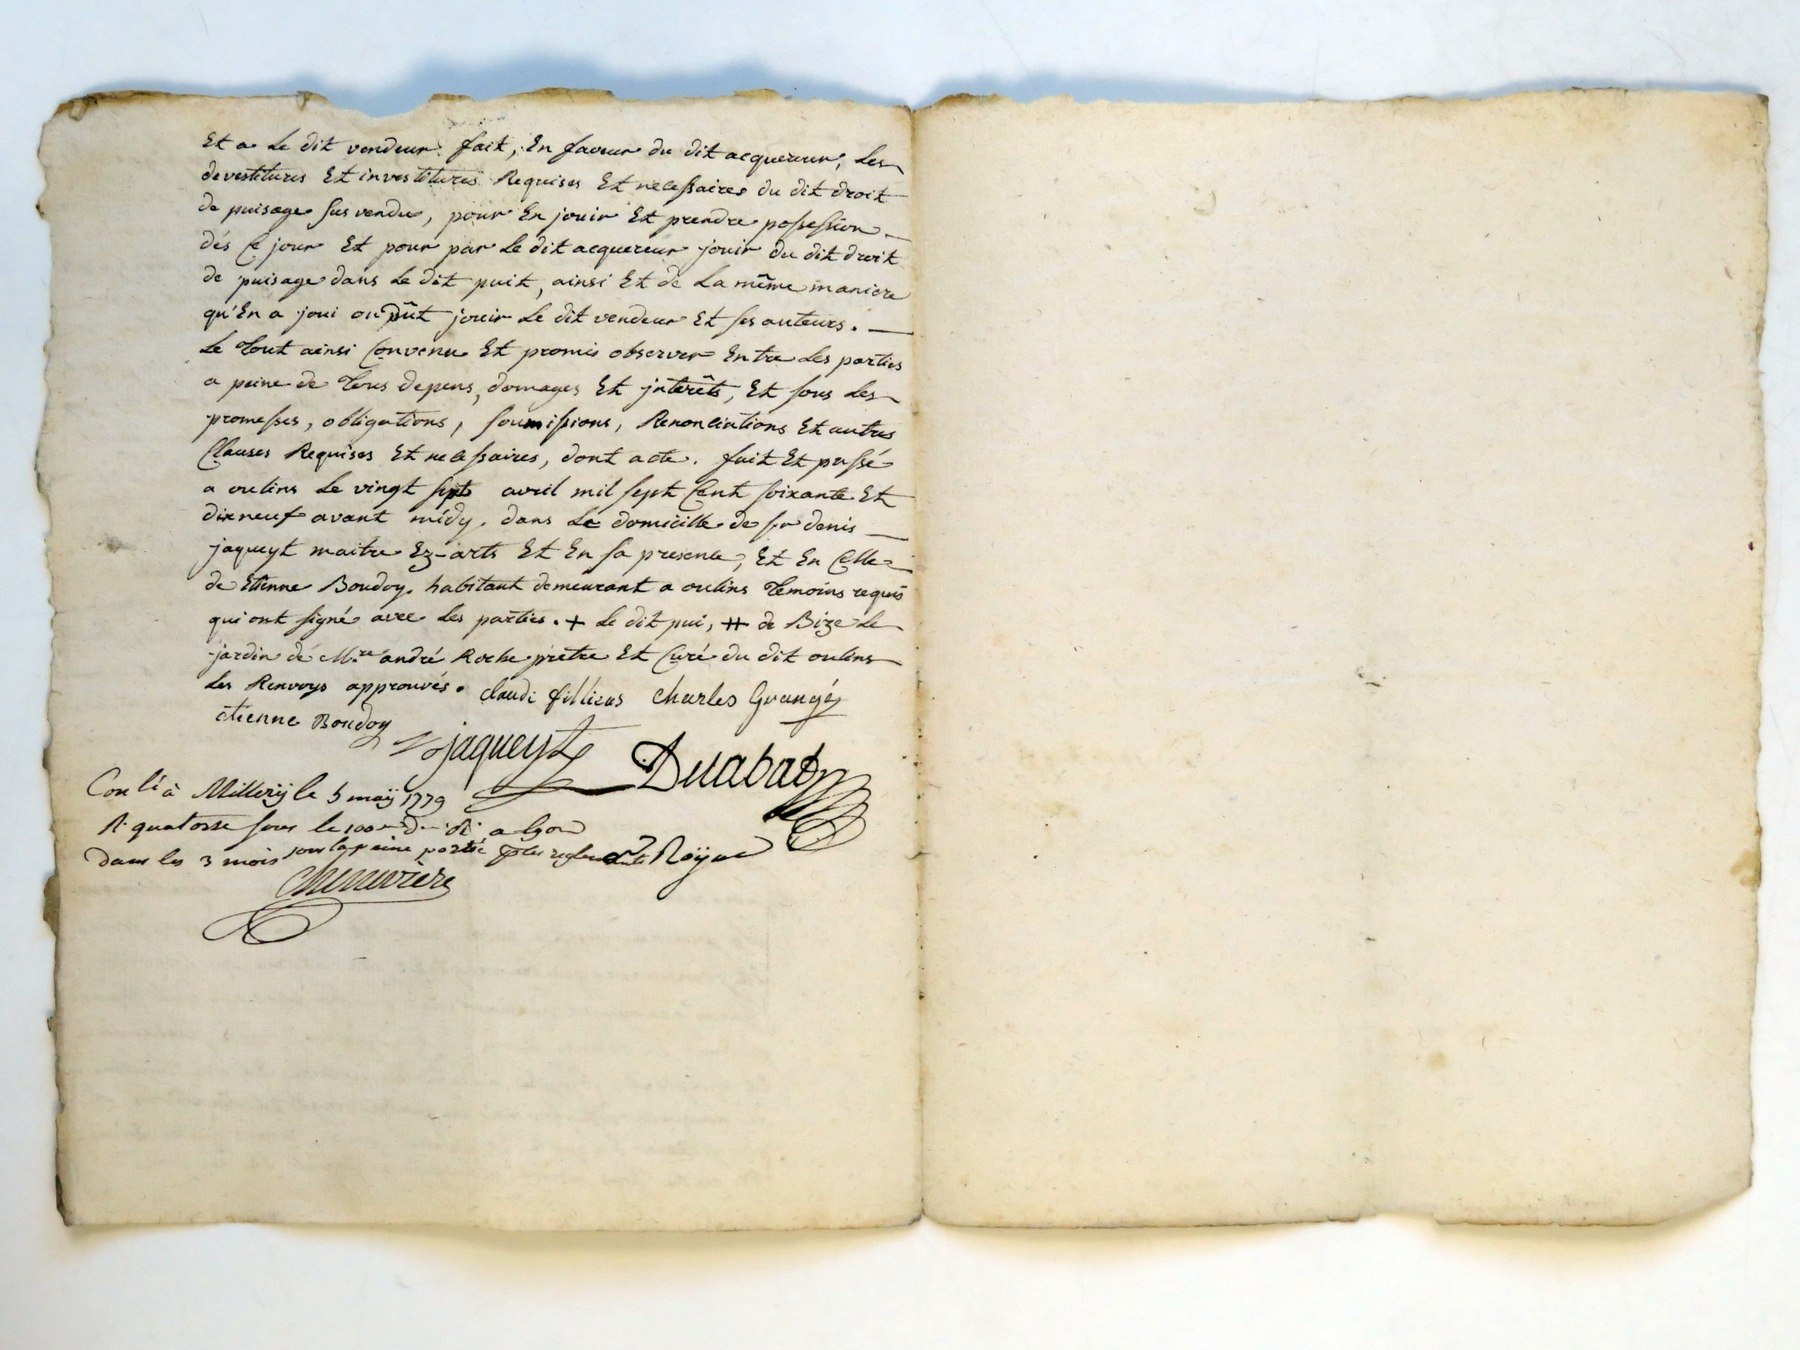 Et a le dit vendeur fait, En faveur du dit acquereur, les
devestitures Et investitures Requises Et necessaires du dit droit
de puisage sus vendu, pour En jouir Et prendre possession
dés ce jour Et pour par le dit acquereur jouir du dit droit
de puisage dans le dit puit, ainsi Et de la même maniere
qu'En a joui ou pût jouir le dit vendeur Et ses auteurs.
le Tout ainsi Convenu Et promis observer Entre les parties
a peine de Tous depens, domages Et jnterêts, Et sous les
promesses, obligations, soumissions, Renonciations Et autres
Clauses Requises Et necessaires, dont acte. fait Et passé
a oulins le vingt sept avril mil sept Cent soixante Et
dixneuf avant midy. dans le domicille de sr denis
jaqueyt maitre Ez-arts Et En sa presence, Et En Celle
de Etienne Boudoy. habitant demeurant a oulins Temoins requis
qui ont signé avec les parties. + le dit pui, ++ de Bize le
jardin de Mre andré Roche prêtre Et Curé du dit oulins
les Renvoys approuvés. claude fillieus Charles Grangé
étienne Boudoy
jaqueyt
Duabad
Con lé à Millery le 5 maÿ 1779
R quatorse sous le 100 a Lyon
dans les 3 mois sous la peine portée Roÿne
Chenevière